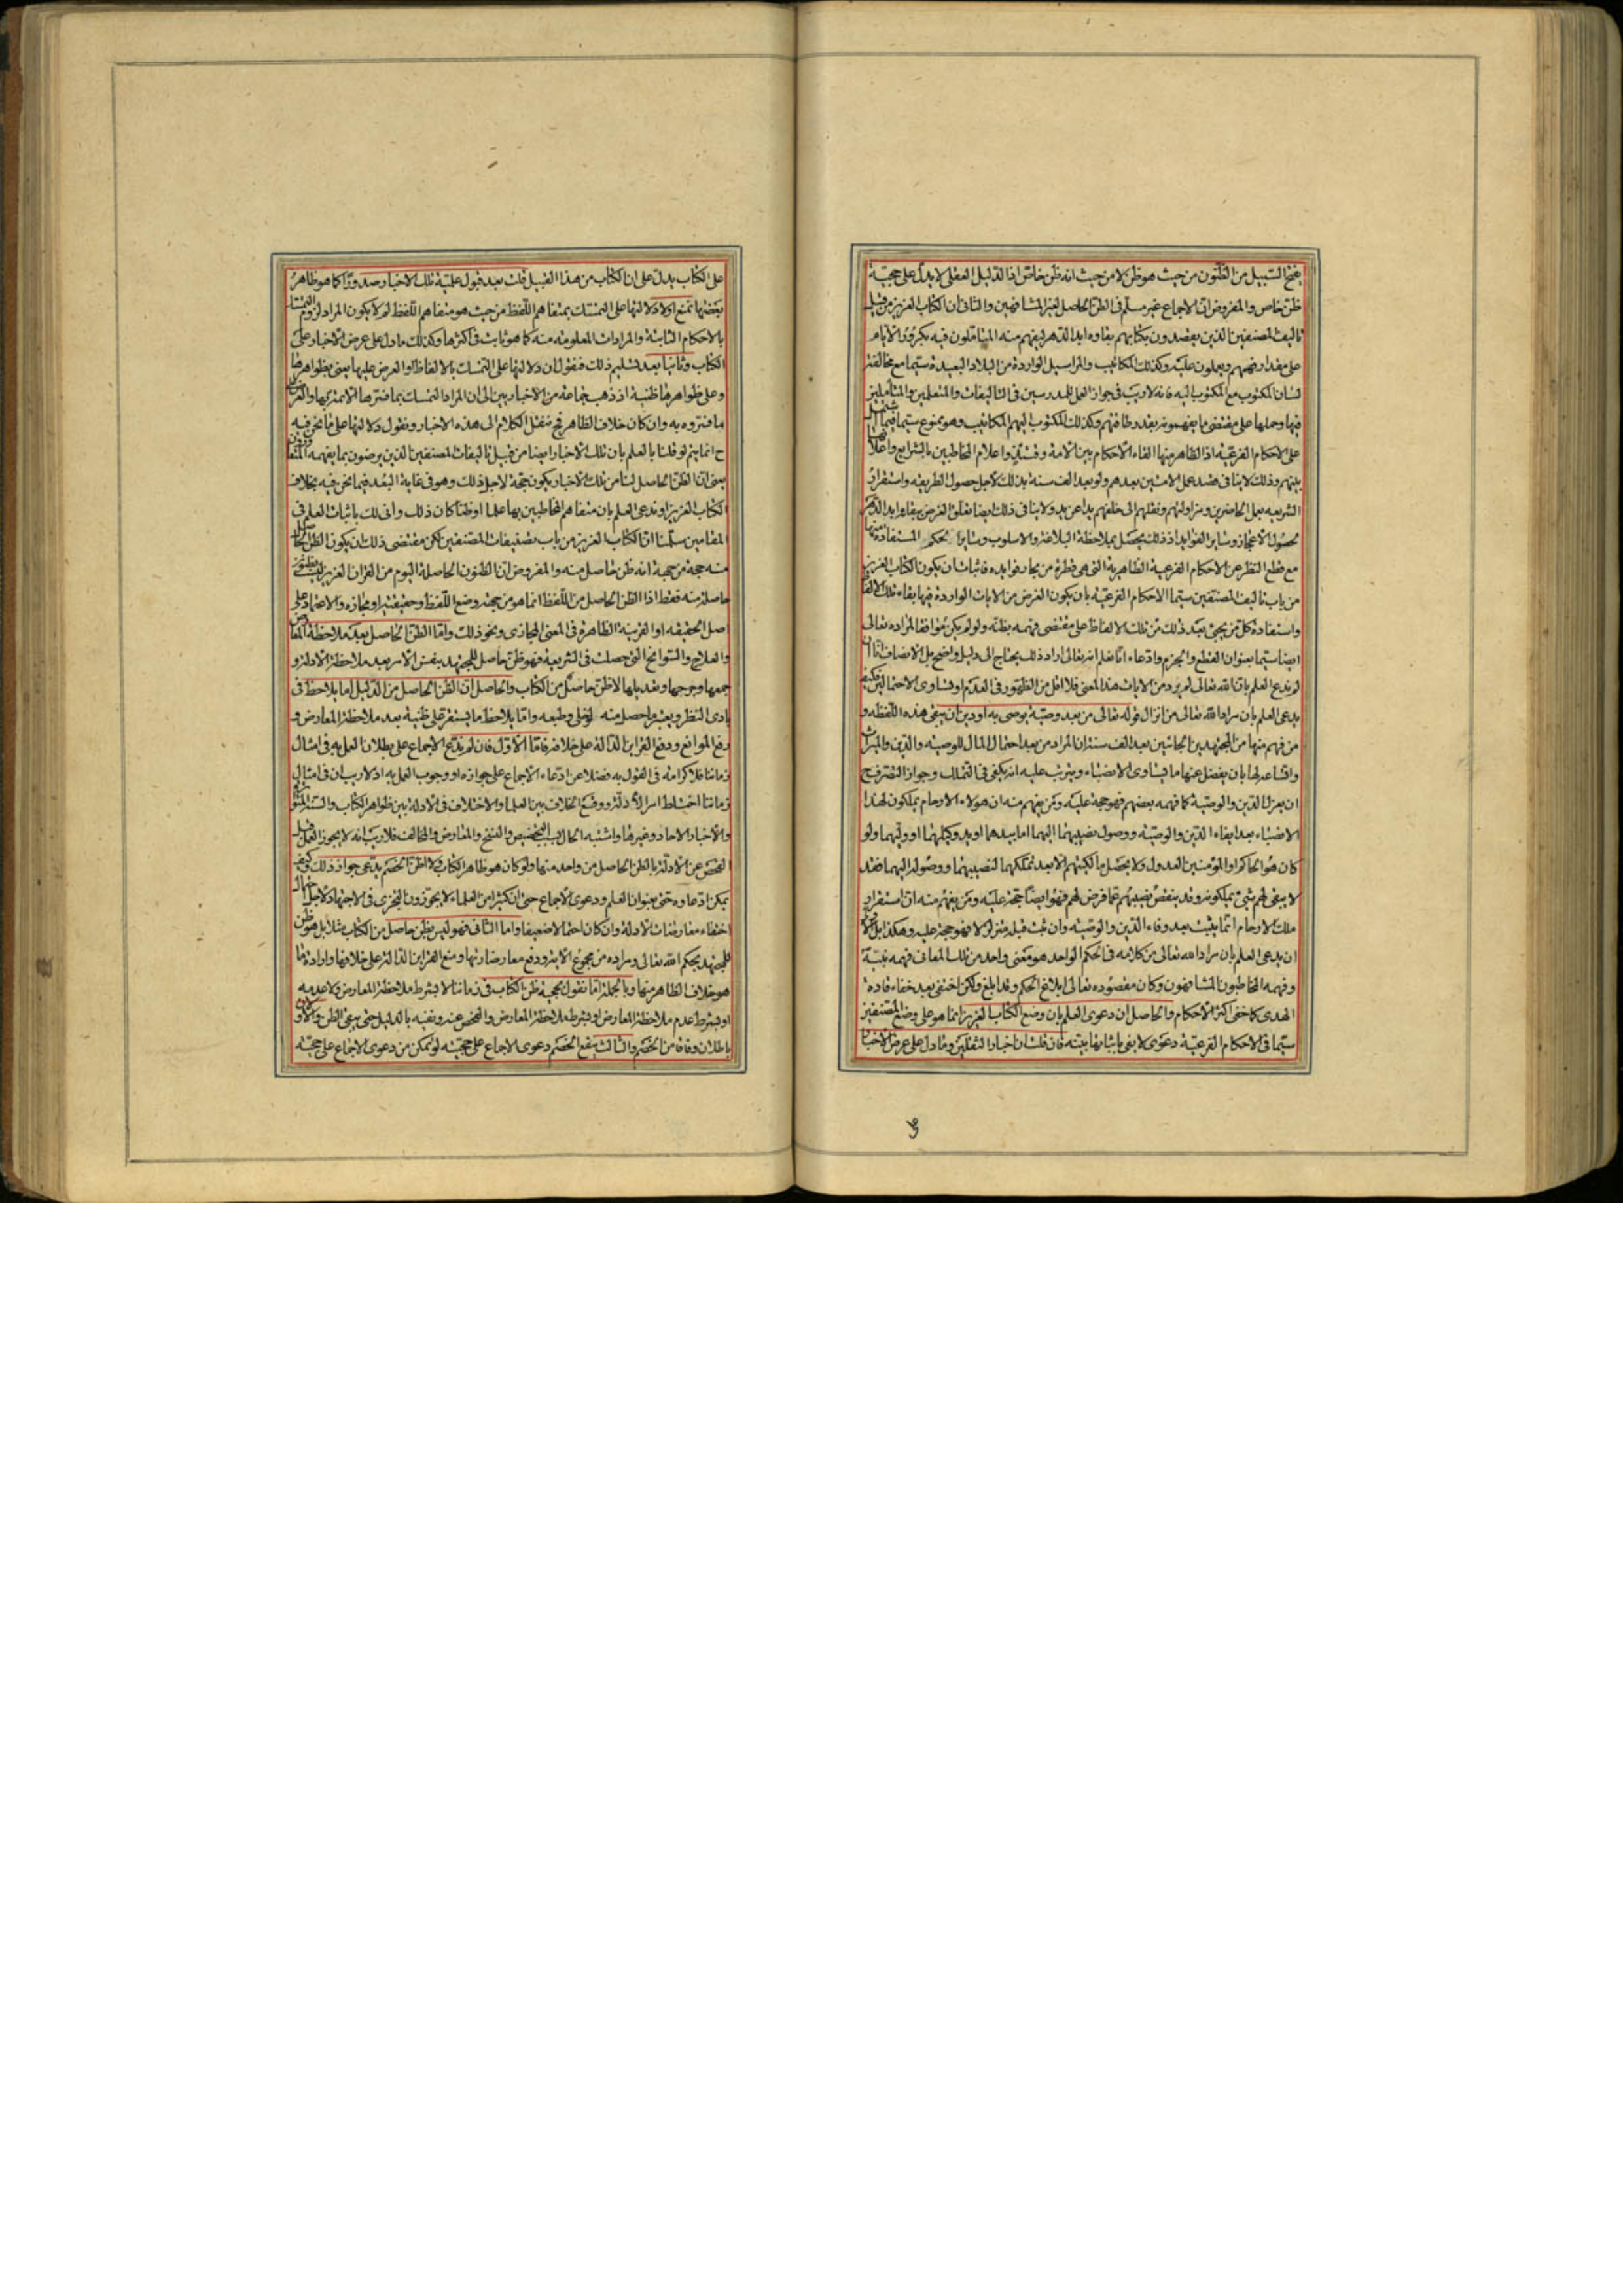 هذا السبيل من الظنون من حيث هو ظن لا من حيث انه ظن خاص اذ الدليل العقلي لا يدل على حجية
ظن خاص والمفروض ان الاجماع غير مسلم في الظن الحاصل لغير المشافهين والثاني ان الكتاب العزيز من قبيل
تاليف المصنفين الذين يقصدون بكتابهم بقاوه ابد الدهر ليفهم منه المتاملون فيه بكرور الايام
على مقدار فهمهم ويعملون عليه وكذلك المكاتيب والمراسيل الواردة من البلاد البعيدة سيما مع مخالفة
لسان المكتوب مع المكتوب اليه فانه لا ريب في جواز العمل للمدرسين في التاليفات والمتعلمين والمتاملين
فيها وحملها على مقتضى ما يفهمونه بقدر طاقتهم وكذلك المكتوب اليهم المكاتيب وهو ممنوع سيما فيما يشتمل
على الاحكام الفرعية اذ الظاهر منها القاء الاحكام بين الامة وفي واعلام المخاطبين بالشرايع واعلانها
بينهم وذلك لا ينافي قصد عمل الاتين بعدهم ولو بعد الف سنة بذلك لاجل حصول الطريقه واستقرار
الشريعه بعمل الحاضرين ومزاولتهم ونقلهم الى خلفهم يدا عن يد ولا ينافي ذلك ايضا تعلق الغرض ببقائها ابد الدهر
لحصول الاعجاز وساير الفوايد اذ ذلك يحصل بملاحظة البلاغة والاسلوب وساير الحكم المستفادة منها
مع قطع النظر عن الاحكام الفرعية الظاهرية التي هي قطرة من بحار فوايده فاثبات ان يكون الكتاب العزيز
من باب تاليف المصنفين سيما الاحكام الفرعية بان يكون الغرض من الايات الواردة فيها بقاء تلك الالفاظ
واستفادة كل من يجئ بعد ذلك من تلك الالفاظ على مقتضى فهمه بظنه ولو لم يكن موافقا لمراده تعالى
ايضا سيما بعنوان القطع والجزم وادعاء انا نعلم انه تعالى اراد ذلك يحتاج الى دليل واضح بل الانصاف انا ان
لم ندع العلم بان الله تعالى لم يرد من الايات هذا المعنى فلا اقل من الظهور في العدم او تساوى الاحتمالين فكيف
يدعى العلم بان مراد الله تعالى من انزال قوله تعالى من بعد وصية يوصى بها او دين ان يبقى هذه اللفظه و
من فهم منها من المجتهدين الجائين بعد الف سنة ان المراد من بعد احتمال المال للوصية والدين والميراث
واتساعه لها بان يفضل عنها ما يساوى الانصباء ويترتب عليه انه يكفى في التملك وجواز التصرف
ان يعزل الدين والوصية كما فهمه بعضهم فهو حجة عليه ومن يفهم منه ان هولاء الارحام يملكون لهذا
الانصباء بعد ايفاء الدين والوصية ووصول نصيبهما اليهما اما بيدهما او يد وكيلهما او وليهما ولو
كان هو الحاكم او المؤمنين العدول ولا يحصل مالكيتهم الا بعد تملكهما لنصيبهما ووصوله اليهما فقد
لا يبقى لهم شئ يملكونه وقد ينقص نصيبهم عما فرض لهم فهو ايضا حجة عليه ومن يفهم منه ان استقرار
ملك الارحام انما يثبت بعد وفاء الدين والوصية وان ثبت قبله متزلزلا فهو حجة عليه وهكذا بل
ان يدعى العلم بان مراد الله تعالى من كلامه في الحكم الواحد هو معنى واحد من تلك المعاني فهمه نبيه
وفهمه المخاطبون المشافهون وكان مقصوده تعالى ابلاغ الحكم وقد ابلغ ولكن اختفى بعد خفاء قادة
الهدى كما خفى اكثر الاحكام والحاصل ان دعوى العلم بان وضع الكتاب العزيز انما هو على وضع المصنفين
سيما في الاحكام الفرعية دعوى لا يفى باثباتها بينة فان قلت ان اخبار الثقلين وما دل على عرض الاخبار
على الكتاب يدل على ان الكتاب من هذا القبيل قلت بعد قبول علمية تلك الاخبار صدورا كما هو ظاهر
بعضها نمنع اولا دلالتها على التمسك بمتفاهم اللفظ من حيث هو متفاهم اللفظ لم لا يكون المراد لزوم التمسك
بالاحكام الثابتة والمرادات المعلومة منه كما هو ثابت في اكثرها وكذلك ما دل على عرض الاخبار على
الكتاب وثانيا بعد تسليم ذلك فنقول ان دلالتها على التمسك بالالفاظ او العرض عليها يعنى بظواهرها
وعلى ظواهرها ظنية اذ ذهب جماعة من الاخباريين الى ان المراد التمسك بما فسرها الائمة بها والعرض على
ما فسروه به وان كان خلاف الظاهر فح ننقل الكلام الى هذه الاخبار ونقول دلالتها على ما نحن فيه
ح انما يتم لو قلنا بالعلم بان تلك الاخبار ايضا من قبيل تاليفات المصنفين الذين يرضون بما يفهمه
يعنى ان الظن الحاصل لنا من تلك الاخبار يكون حجة لاجل ذلك وهو في غاية البعد فيما نحن فيه بخلاف
الكتاب العزيز او ندعى العلم بان متفاهم المخاطبين بها علما او ظنا كان ذلك وانى لك باثبات العلم في
المقامين سلمنا ان الكتاب العزيز من باب تصنيفات المصنفين لكن مقتضى ذلك ان يكون الظن الحاصل
منه حجة من جهة انه ظن حاصل منه والمفروض ان الظنون الحاصلة اليوم من القران العزيز ليست بظنون
حاصلة منه فقط اذ الظن الحاصل من اللفظ انما هو من جهة وضع اللفظ وحقيقته او مجازه والاعتماد على
اصل الحقيقه او القرينة الظاهرة في المعنى المجازى ونحو ذلك واما الظن الحاصل بعد ملاحظة المعارض
والعلاج والسوانح التى حصلت في الشريعة فهو ظن حاصل للمجتهد بنفس الامر بعد ملاحظة الادلة و
جمعها وجرحها وتعديلها لا ظن حاصل من الكتاب والحاصل ان الظن الحاصل من الدليل اما يلاحظ في
بادى النظر ويعتبر ما حصل منه لو خلى وطبعه واما يلاحظ ما يستقر على ظنية بعد ملاحظة المعارض و
رفع الموانع ودفع القراين الدالة على خلافه فاما الاول فان لم ندع الاجماع على بطلان العمل به في امثال
زماننا فلا كرامة في القول به فضلا عن ادعاء الاجماع على جوازه او وجوب العمل به اذ لا ريب ان في امثال
زماننا اختلط امر الادلة ووقع الخلاف بين العلما والاختلاف في الادلة بين ظواهر الكتاب والسنة المتواترة
والاخبار الاحاد وغيرها واشتبه الحال بسبب التخصيص والنسخ والمعارض والمخالف فلا ريب انه لا يجوز العمل قبل
الفحص عن الادلة بالظن الحاصل من واحد منها ولو كان هو ظاهر الكتاب ولا اظن الخصم يدعى جواز ذلك وكيف
يمكن ادعاوه حتى بعنوان العلم ودعوى الاجماع حتى ان كثيرا من العلماء لا يجوزون التجزى في الاجتهاد لاجل احتمال
اختفاء معارضات الادلة وان كان احتمالا ضعيفا واما الثاني فهو ليس بظن حاصل من الكتاب مثلا بل هو ظن
للمجتهد بحكم الله تعالى ومراده من مجموع الاية ودفع معارضاتها ومنع القراين الدالة على خلافها وارادة ما
هو خلاف الظاهر منها وبالجملة اما نقول بحجية ظن الكتاب في زماننا لا بشرط ملاحظة المعارض ولا عدمه
او بشرط عدم ملاحظة المعارض او بشرط ملاحظة المعارض والفحص عنه ونفيه بالدليل حتى يبقى الظن والاولان
باطلان وفاقا من الخصم والثالث ينفع الخصم دعوى الاجماع على حجيته لو تمكن من دعوى الاجماع على حجية